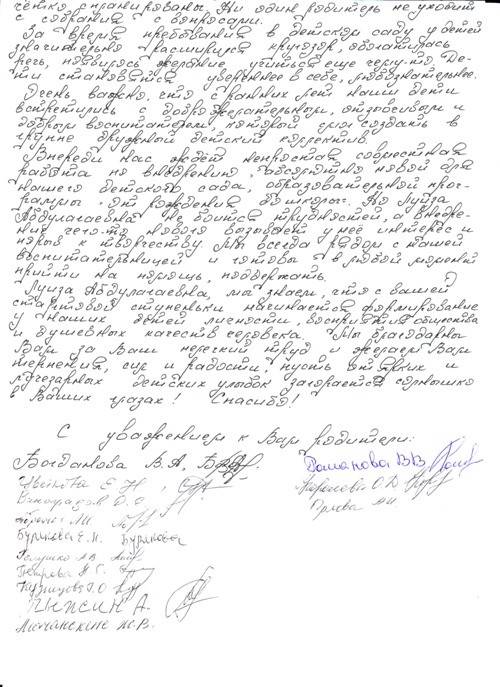 чётко спланированы. Ни один родитель не уходит
с собрания с вопросами.
За время пребывания в детском саду у детей
значительно расширился кругозор, обогатилась
речь, появилось желание учиться еще чему-то. Де-
ти становятся увереннее в себе, любознательнее.
Очень важно, что с ранних лет наши дети
встретились с доброжелательным, отзывчивым и
добрым воспитателем, который смог создать в
группе дружный детский коллектив.
Впереди нас ждёт непростая совместная
работа по внедрению абсолютно новой для
нашего детского сада, образовательной прог-
раммы "От рождения до школы". Но Луиза
Абдулагаевна не боится трудностей, а внедре-
ние чего-то нового вызывает у неё интерес и
порыв к творчеству. Мы всегда рядом с нашей
воспитательницей и готовы в любой момент
прийти на помощь, поддержать.
Луиза Абдулагаевна, мы знаем, что с вашей
стартовой ступеньки начинается формирование
у наших детей личности, восприятия общества
и душевных качеств человека. Мы благодарны
Вам за Ваш нелегкий труд и желаем Вам
терпения, сил и радости. Пусть от ярких и
лучезарных детских улыбок загорается солнышко
в Ваших глазах! Спасибо!
С уважением к Вам родители:
Богданова В.А.
Романова В.В.
Виноградов Д.С.
Орлова
Бурякова Е.И. Бурякова
Галушко А.В.
Петрова Н.С.
Кузнецова Т.О.
Пыжкин А.